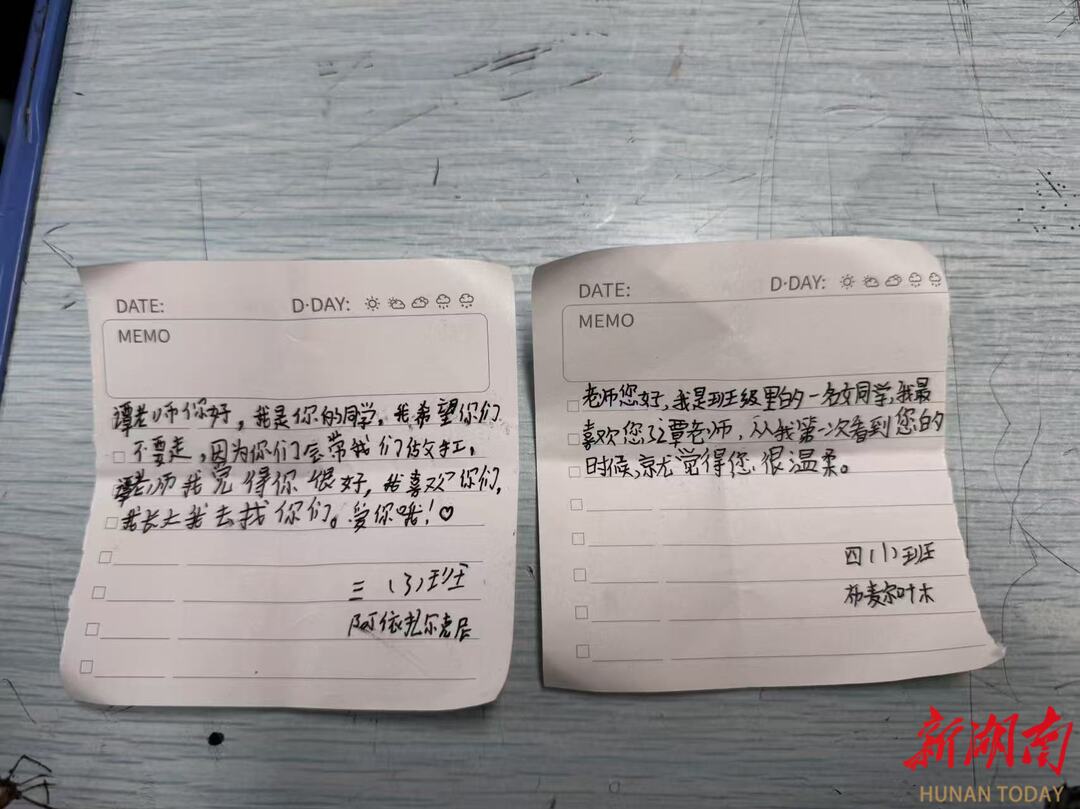 DATE:
D·DAY:
MEMO
谭老师你好，我是你的同学，我希望你们
不要走，因为你们会带我们做手工，
谭老师我觉得你很好，我喜欢你们，
我长大我去找你们。爱你哦！♡
三（3）班
阿依扎尔克尼
DATE:
D·DAY:
MEMO
老师您好，我是班级里的一名女同学，我最
喜欢您了覃老师，从我第一次看到您的
时候，就觉得您很温柔。
四（1）班
布麦尔叶木
新湖南
HUNAN TODAY